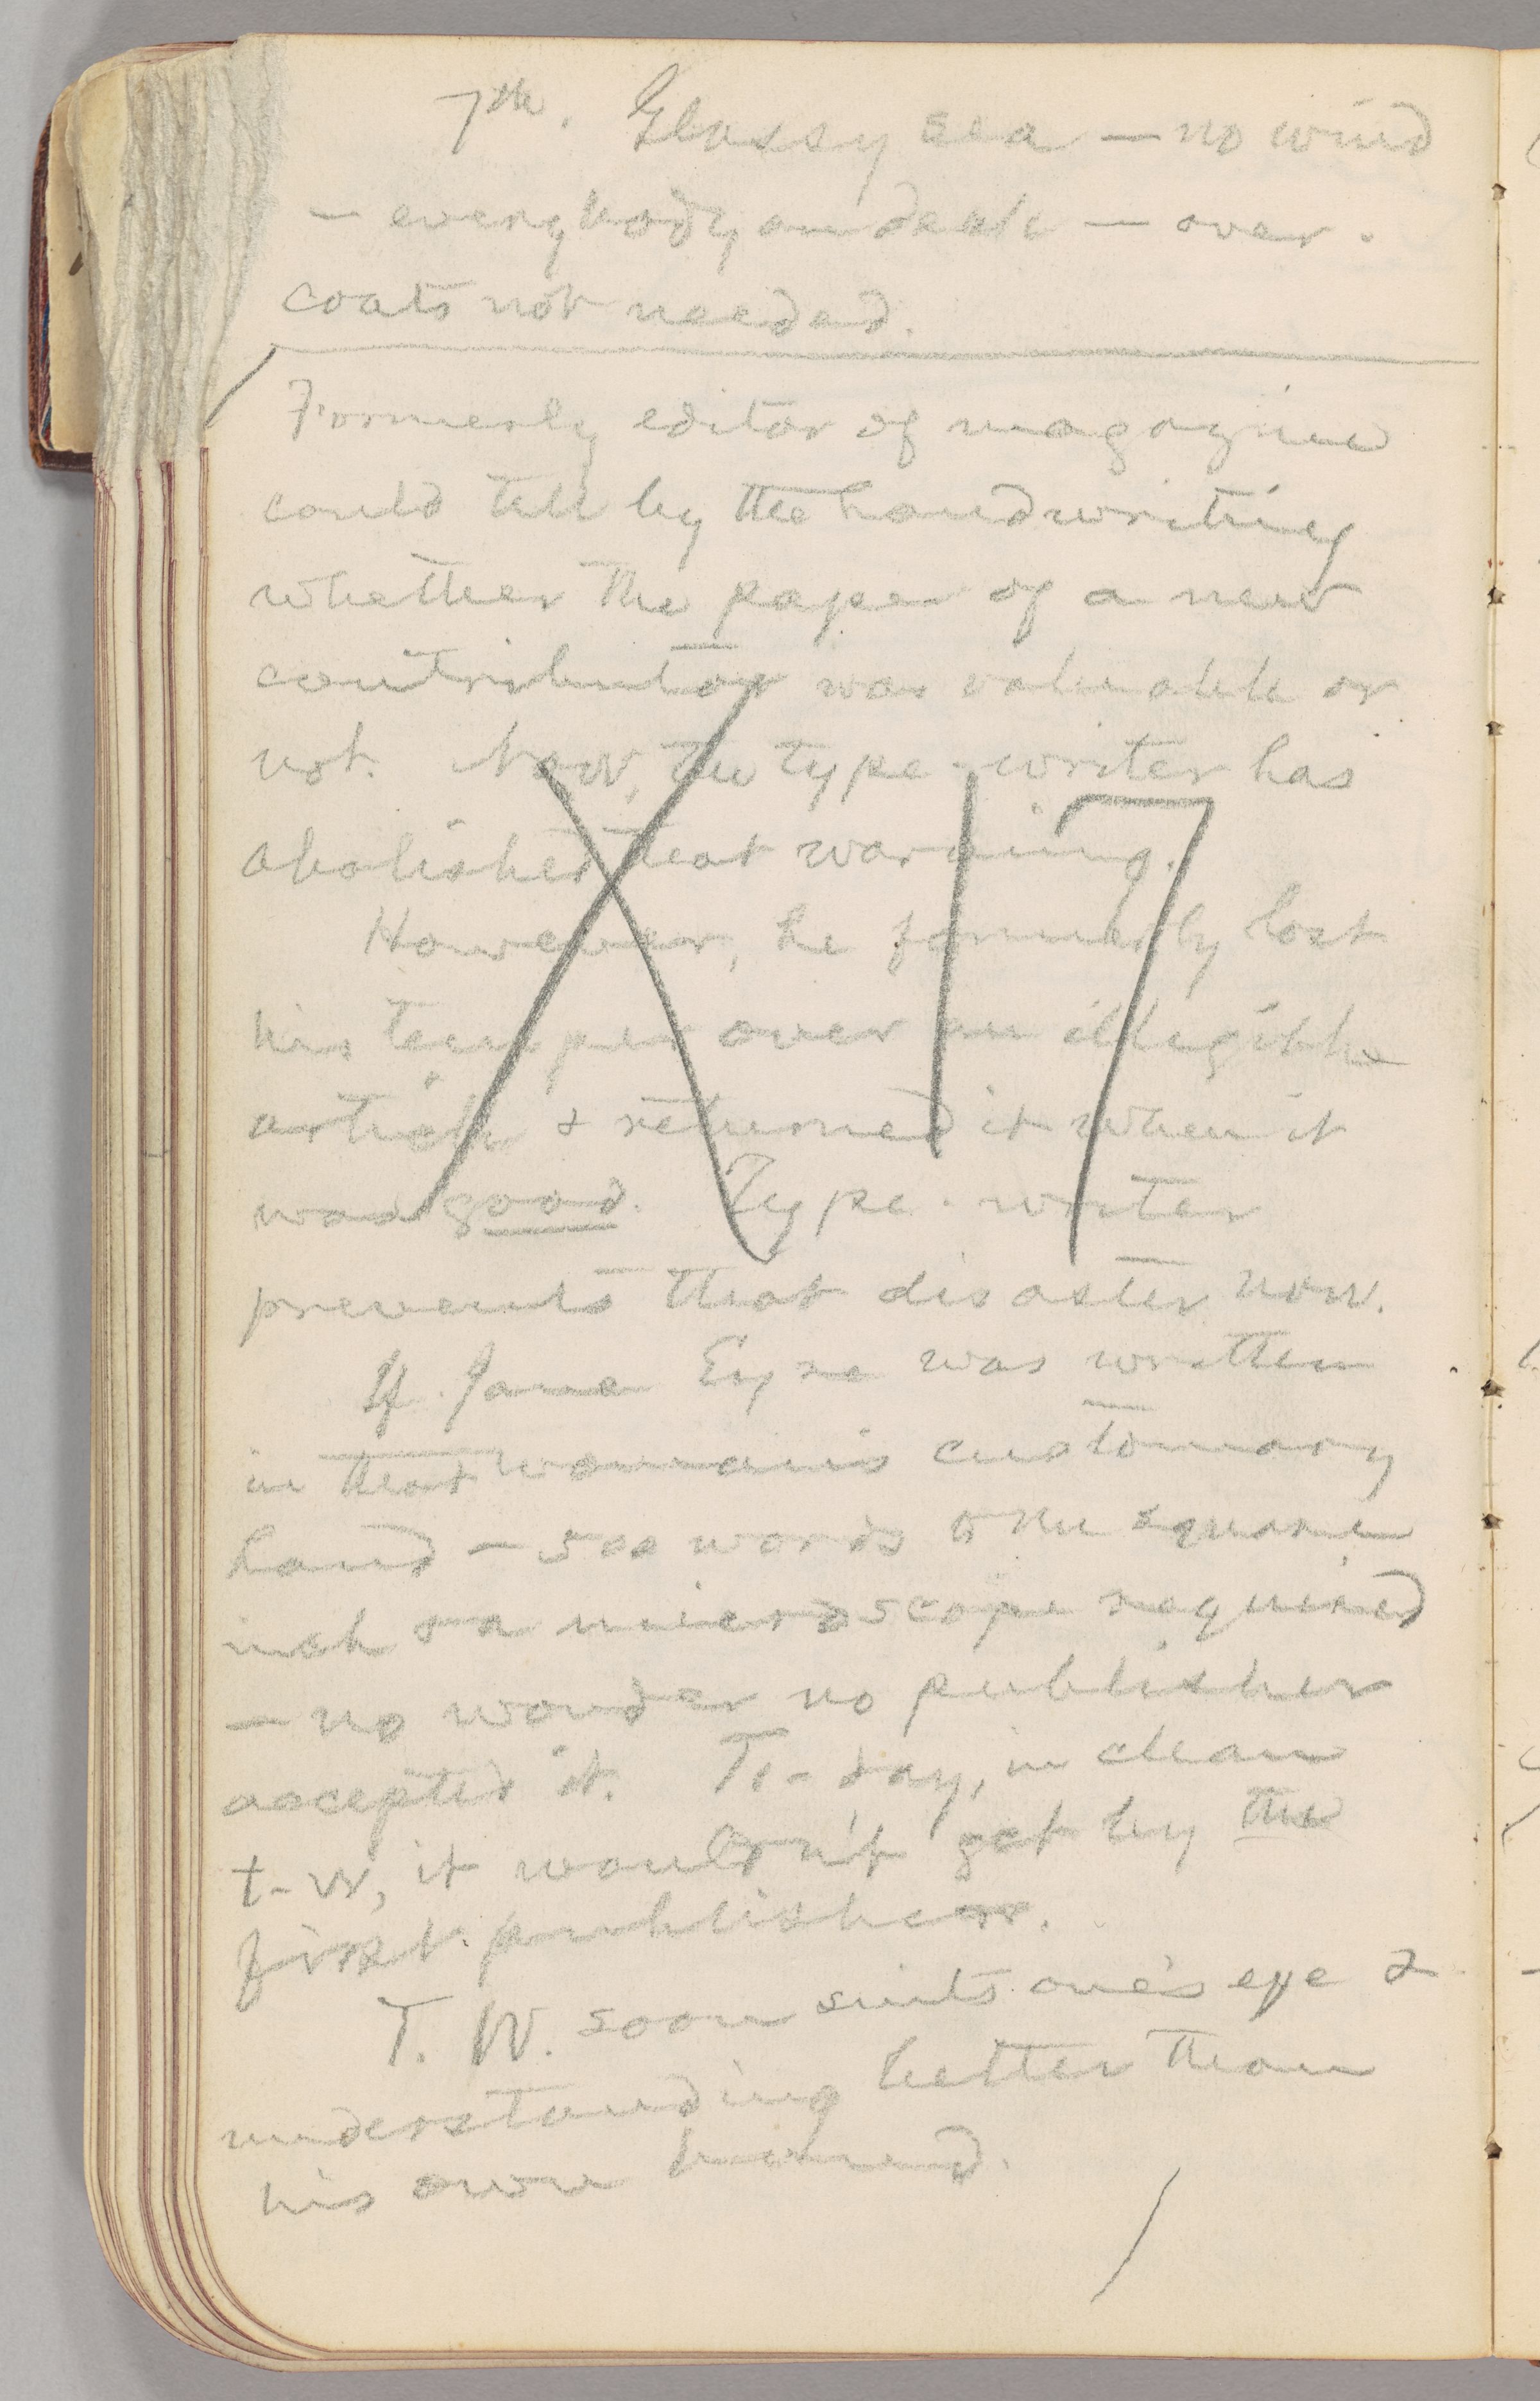 7th. Glassy sea — no wind
— everybody on deck — over-
coats not needed.
Formerly editor of magazine
could tell by the handwriting
whether the paper of a new
contributor was valuable or
not. Now, the type-writer has
abolished that warning.
However, he formerly lost
his temper over an illegible
article & returned it when it
was good. Type-writer
prevents that disaster now.
If Jane Eyre was written
in that woman's customary
hand — 500 words to the square
inch & a microscope required
— no wonder no publisher
accepted it. To-day, in clean
t-w, it wouldn't get by the
first publisher.
T. W. soon suits one's eye &
understanding better than
his own hand.
X 17